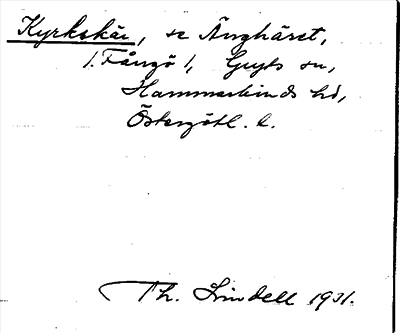 Kyrkskär, se Änghäret,
/. Fångö /, Gryts sn,
Hammarkinds hd,
Östergötl. l.
Th. Lindell 1931.